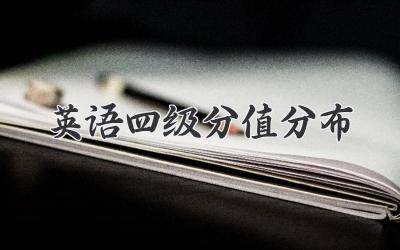 英语四级分值分布